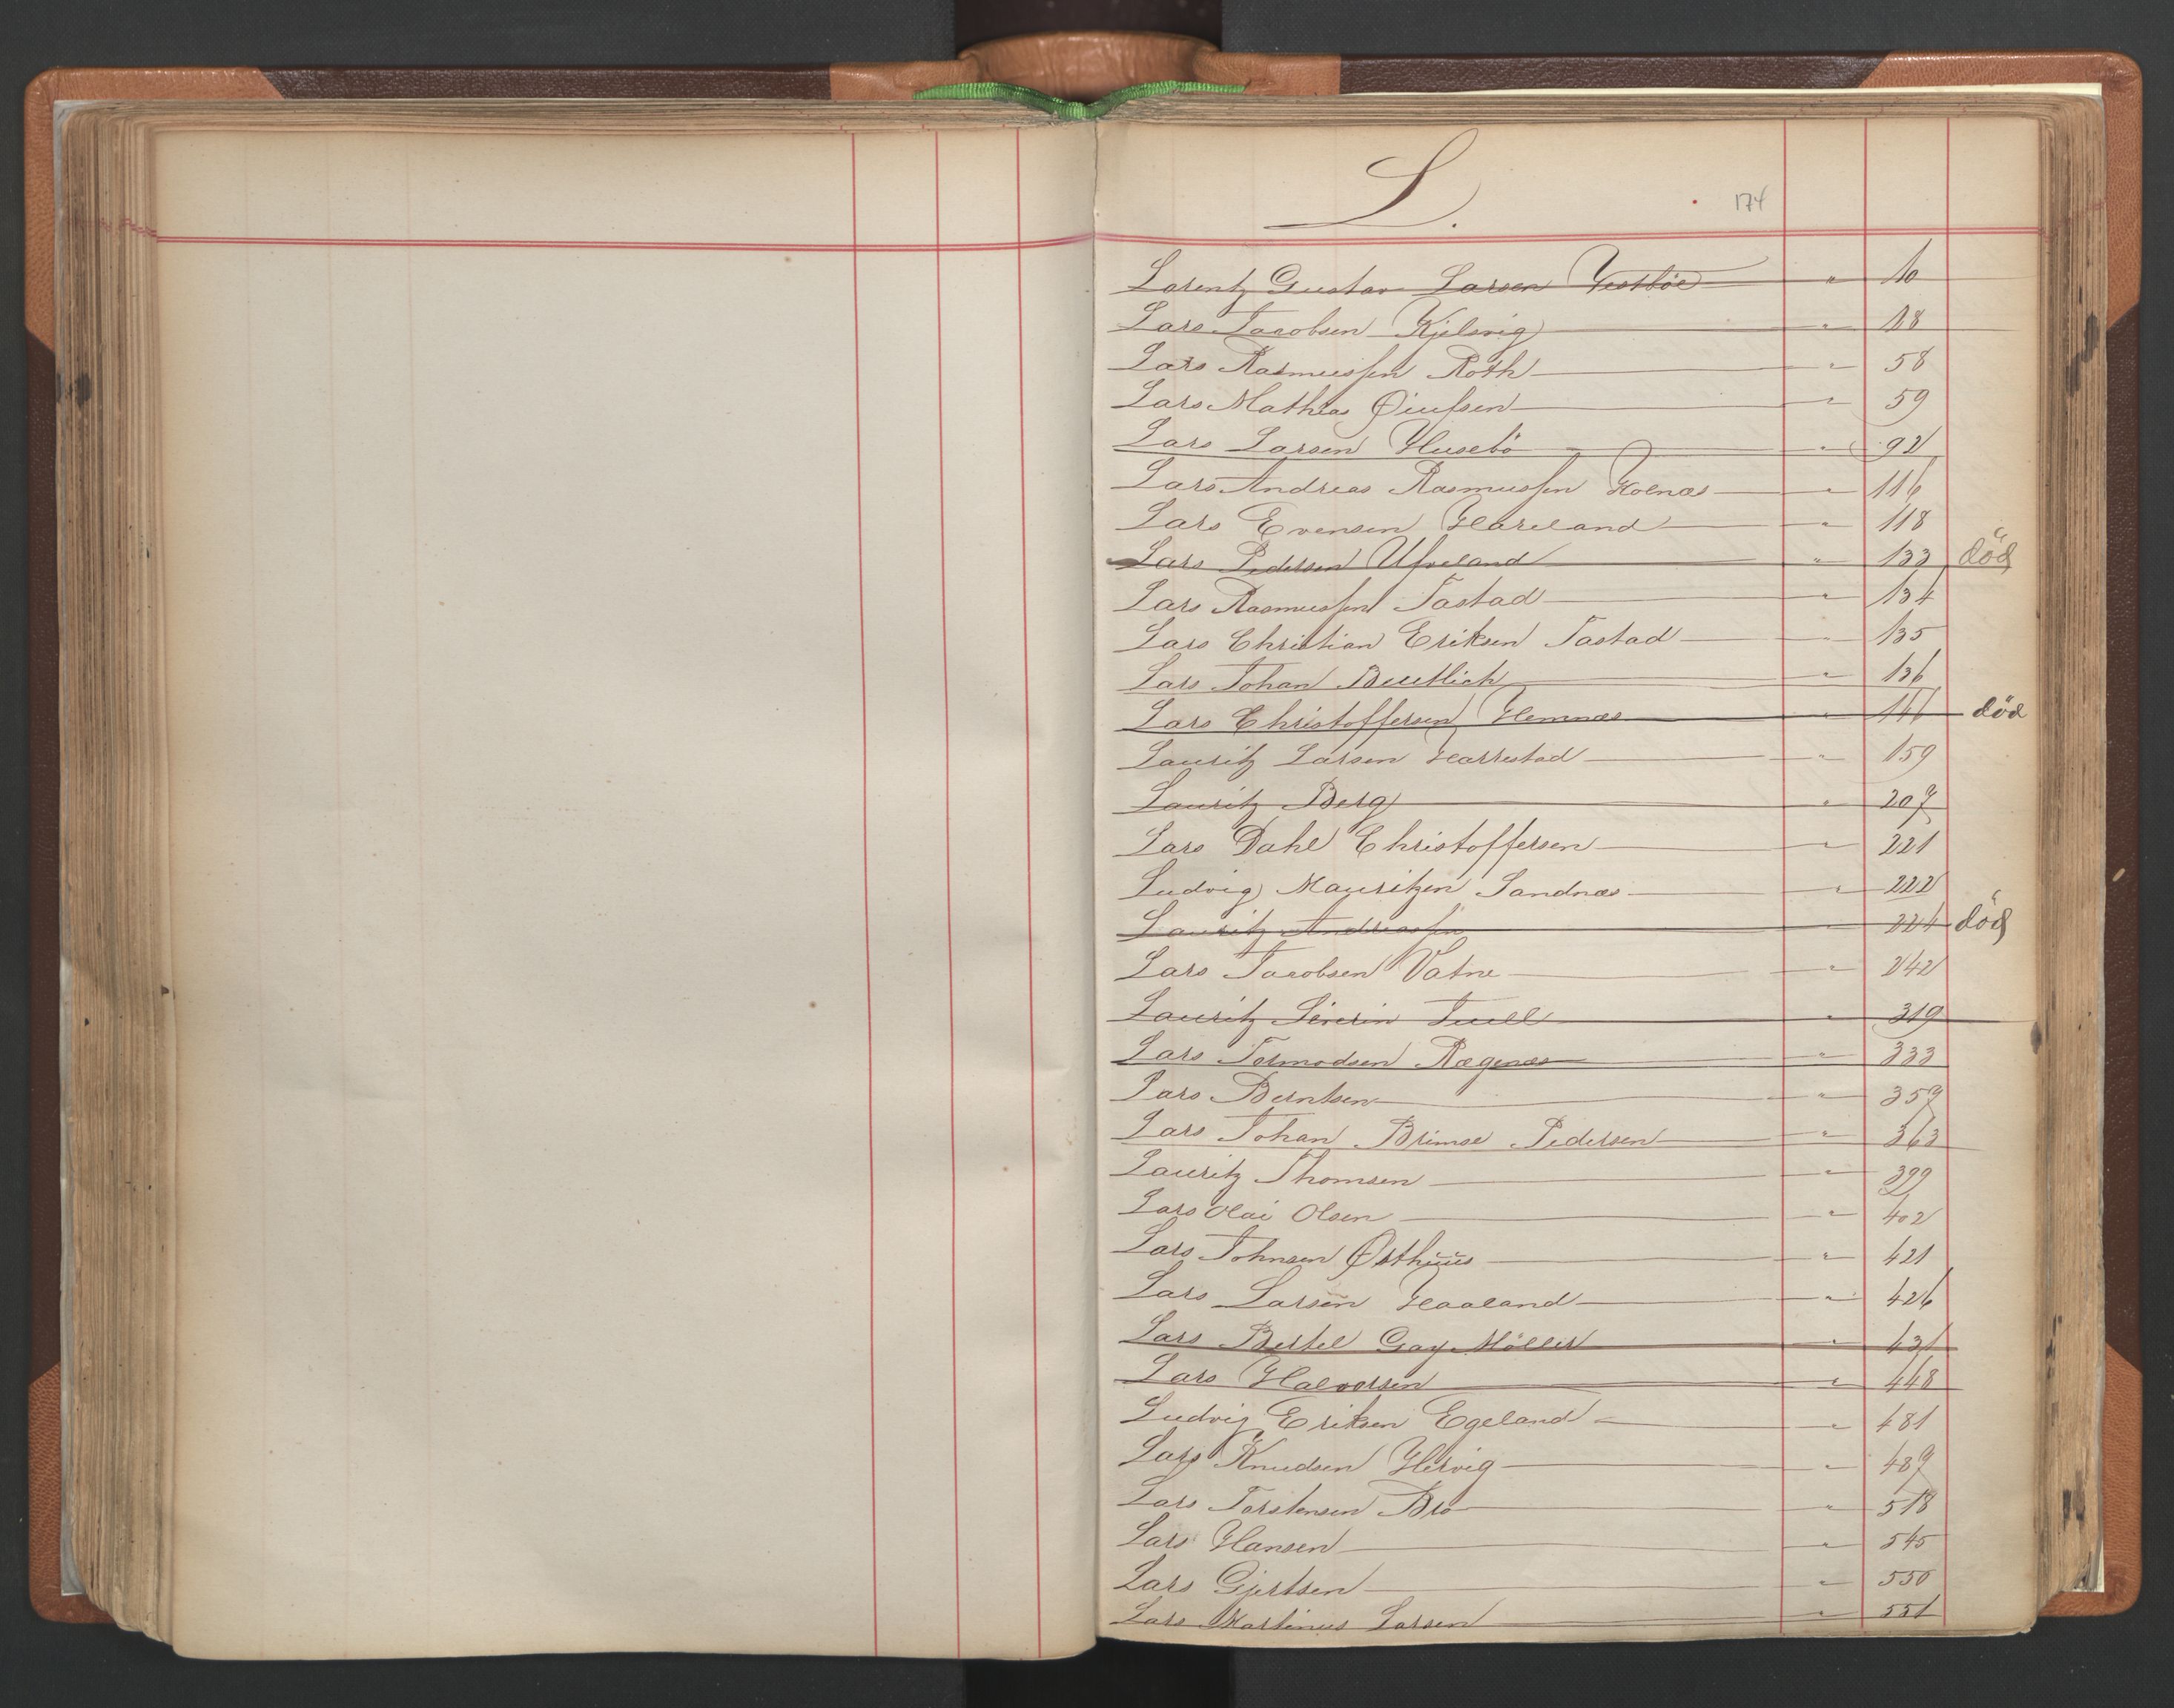 L.
174
Lorentz Gustav Larsen Vestböe " 10
Lars Jacobsen Kjelvig " 18
Lars Rasmussen Roth " 58
Lars Mathias Øiufsen " 59
Lars Larsen Husebö " 92
Lars Andreas Rasmussen Holnæs " 116
Lars Evensen Hareland " 118
Lars Pedersen Ufveland " 133 död
Lars Rasmussen Tastad " 134
Lars Christian Eriksen Tastad " 135
Lars Johan Beutlich " 136
Lars Christoffersen Hemnæs " 146 död
Lauritz Larsen Harrestad " 159
Lauritz Berg " 207
Lars Dahl Christoffersen " 221
Ludvig Mauritzen Sandnæs " 222
Lauritz Andreassen " 224 död
Lars Jacobsen Vatne " 242
Lauritz Severin Juell " 319
Lars Tormodsen Rægenæs " 333
Lars Berntsen " 357
Lars Johan Brimse Pedersen " 363
Lauritz Thomsen " 399
Lars Olai Olsen " 402
Lars Johnsen Østhuus " 421
Lars Larsen Haaland " 426
Lars Bertel Gay Möller " 431
Lars Halvorsen " 448
Ludvig Eriksen Egeland " 481
Lars Knudsen Hervig " 487
Lars Torstensen Bro " 518
Lars Hansen " 545
Lars Gjertsen " 550
Lars Martinus Larsen " 551